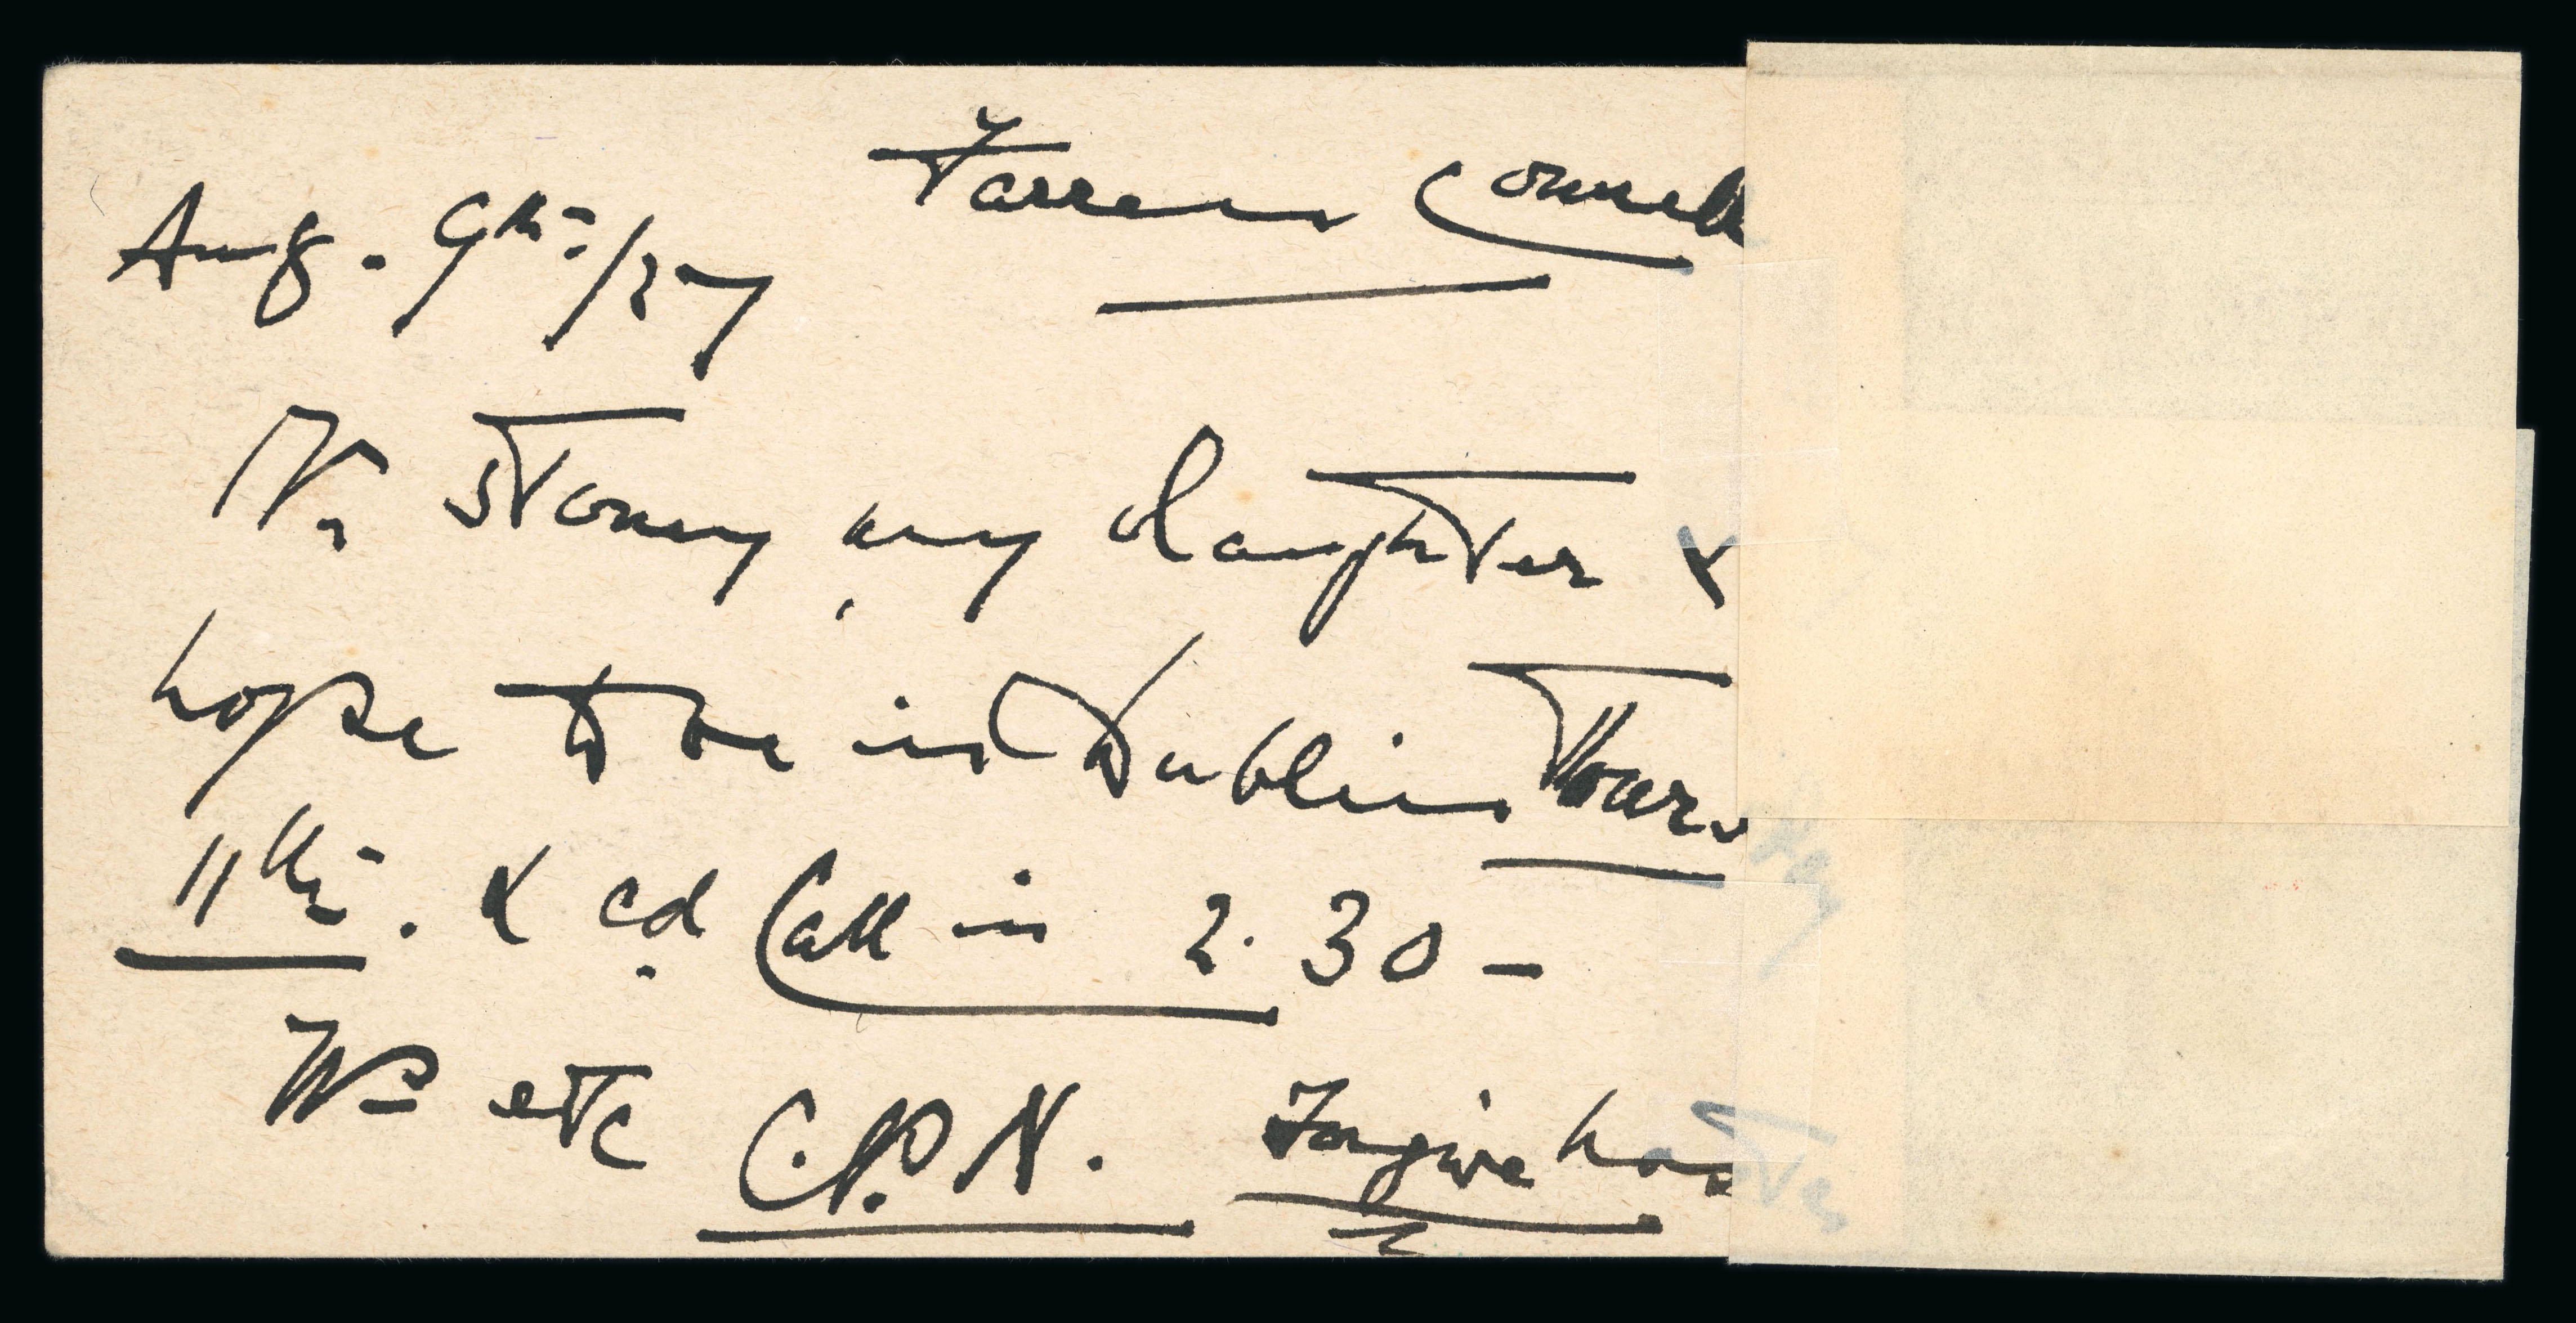 Farren Connell
Aug. 9th/27
Mr Stoney my daughter &
hope to be in Dublin Thursday
11th. & cd Call in 2.30 –
etc C.P.N. Forgive haste